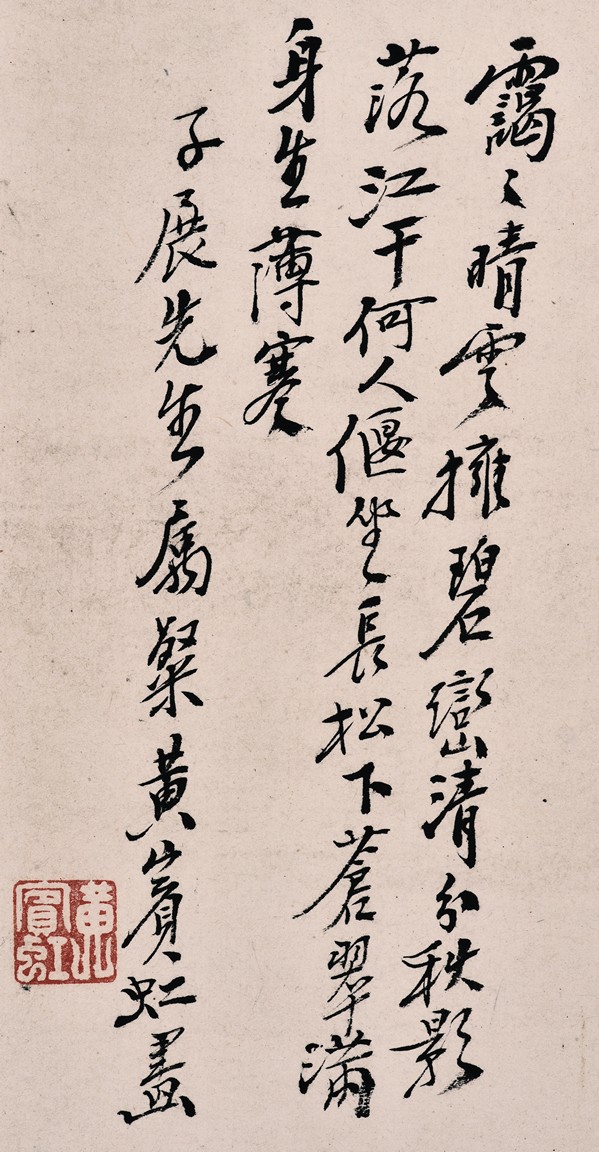 靄〻晴雲擁碧巒清分秋影
落江干何人偃坐長松下蒼翠滿
身生薄寒
子展先生屬粲黃賓虹畫
黃賓虹